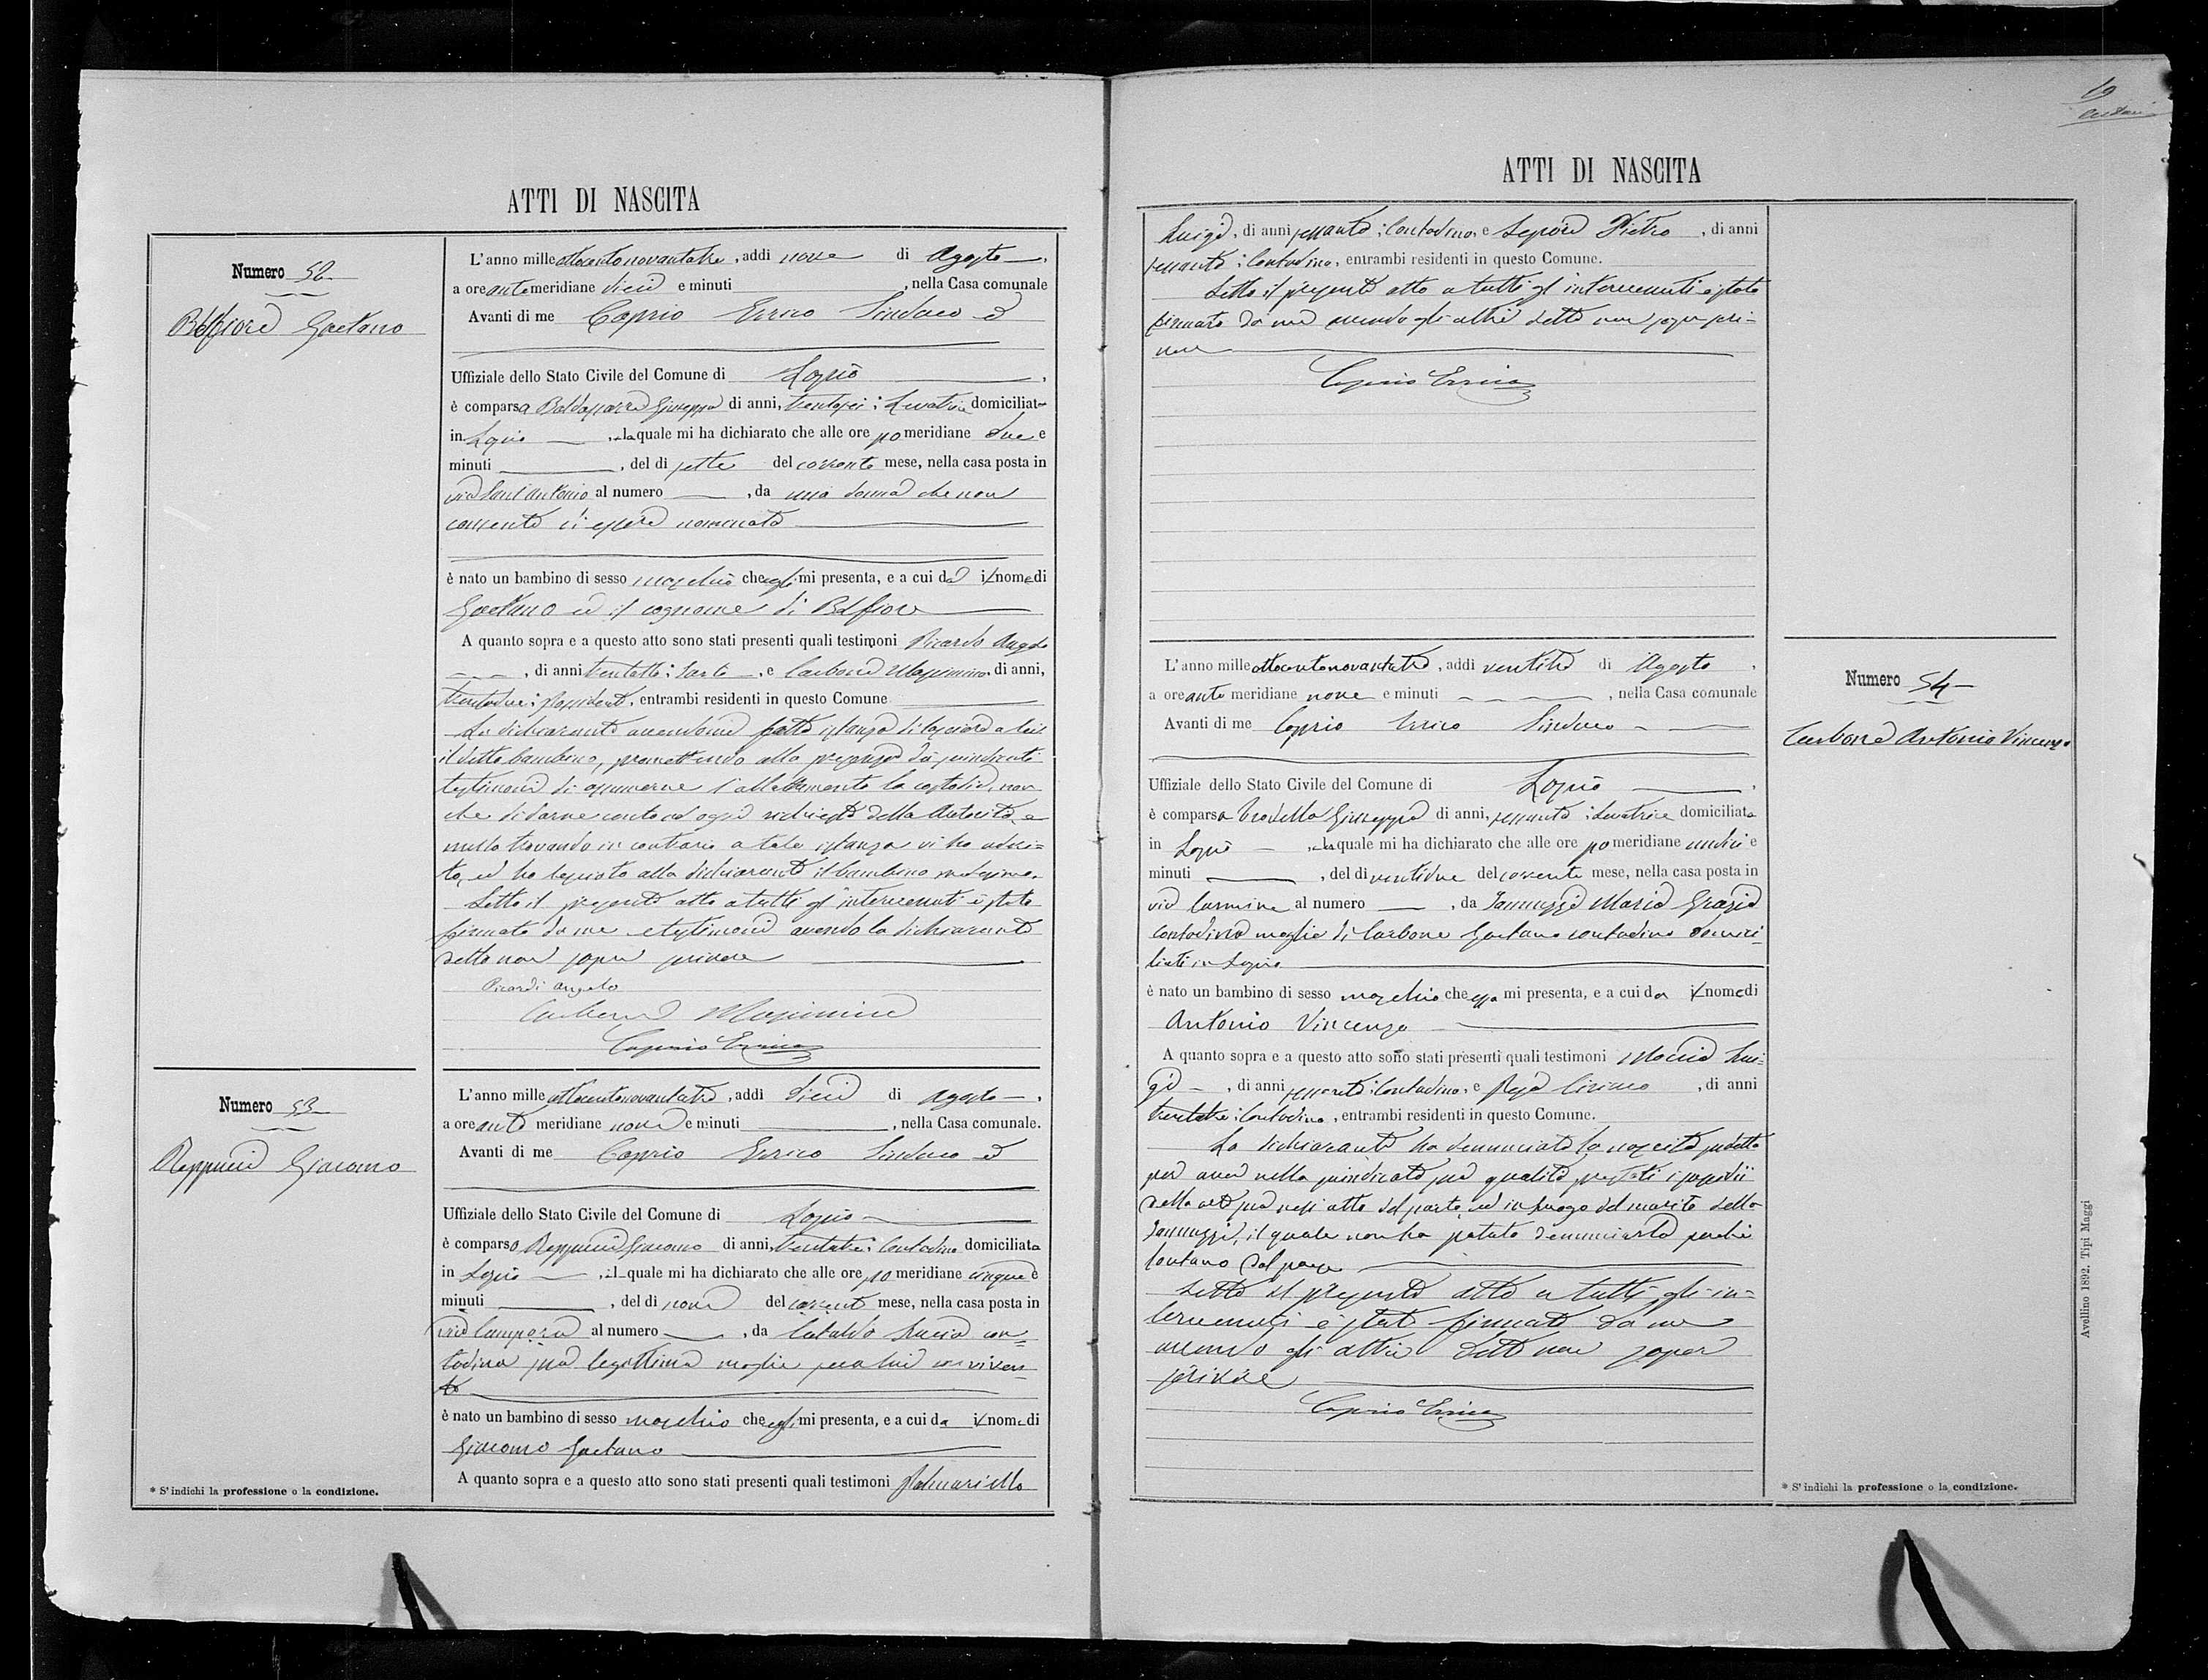 ATTI DI NASCITA
Numero 52
Belfiore Gaetano
L'anno mille ottocentonovantatre, addi nove di Agosto,
a ore antemeridiane dieci e minuti , nella Casa comunale
Avanti di me Caprio Errico Sindaco ed
Uffiziale dello Stato Civile del Comune di Lapio,
è comparsa Baldassarre Giuseppa di anni, trentasei; Levatrice domiciliata
in Lapio , la quale mi ha dichiarato che alle ore pomeridiane due e
minuti , del dì sette del corrente mese, nella casa posta in
via Sant'Antonio al numero , da una donna che non
consente di essere nominata
è nato un bambino di sesso maschio che mi presenta, e a cui dà il nome di
Gaetano ed il cognome di Belfiore
A quanto sopra e a questo atto sono stati presenti quali testimoni Picardi Angelo
, di anni ; Sarto, e Carbone Massimino, di anni,
trentadue; possidente, entrambi residenti in questo Comune
La dichiarante avendomi fatto istanza di lasciare a lei
il detto bambino, promettendo alla presenza dei suindicati
testimoni di assumerne l'allattamento la custodia, non
che di darne conto ad ogni richiesta della Autorità, e
nulla trovando in contrario a tale istanza vi ho aderi=
to, ed ho lasciato alla dichiarante il bambino medesimo.
Letto il presente atto a tutti gl'intervenuti è stato
firmato da me e testimoni avendo la dichiarante
detto non saper scrivere
Picardi Angelo
Carbone Massimino
Caprio Errico
Numero 53
Reppucci Giacomo
L'anno mille ottocentonovantatre, addi dieci di Agosto,
a ore ante meridiane nove e minuti , nella Casa comunale.
Avanti di me Caprio Errico Sindaco ed
Uffiziale dello Stato Civile del Comune di Lapio
è comparso Reppucci Giacomo di anni, trentatre; Contadino domiciliato
in Lapio , il quale mi ha dichiarato che alle ore po meridiane cinque e
minuti , del dì nove del corrente mese, nella casa posta in
via Campora al numero , da Cataldo Lucia con=
tadina sua legittima moglie seco lui conviven=
te
è nato un bambino di sesso maschio che egli mi presenta, e a cui dà il nome di
Giacomo Gaetano
A quanto sopra e a questo atto sono stati presenti quali testimoni Palmariello
* S'indichi la professione o la condizione.
19
ATTI DI NASCITA
Luigi, di anni sessanta; Contadino, e Lepore Pietro, di anni
sessanta; Contadino, entrambi residenti in questo Comune.
Letto il presente atto a tutti gl'intervenuti è stato
firmato da me avendo gli altri detto non saper scri=
vere
Caprio Errico
L'anno mille ottocentonovantatre, addi ventitre di Agosto,
a ore ante meridiane nove e minuti , nella Casa comunale
Avanti di me Caprio Errico Sindaco
Uffiziale dello Stato Civile del Comune di Lapio,
è comparsa Giuseppa di anni, sessanta; Levatrice domiciliata
in Lapio , la quale mi ha dichiarato che alle ore pomeridiane undici e
minuti , del dì ventidue del corrente mese, nella casa posta in
via Carmine al numero , da Iannuzzi Maria Grazia
contadina moglie di Carbone Gaetano contadino domici=
liati in Lapio
è nato un bambino di sesso maschio che essa mi presenta, e a cui da il nome di
Antonio Vincenzo
A quanto sopra e a questo atto sono stati presenti quali testimoni Moccia Lui=
gi , di anni sessanta; Contadino, e Ciriaco , di anni
trentatre; Contadino, entrambi residenti in questo Comune.
La dichiarante ha denunciato la nascita sudetta
per aver nella suindicata sua qualità prestati i sussidii
della arte sua nell'atto del parto, ed in luogo del marito della
Iannuzzi, il quale non ha potuto denunciarla perchè
lontano dal paese
Letto il presente atto a tutti gli in=
tervenuti è stato firmato da me
avendo gli altri detto non saper
scrivere
Caprio Errico
Numero 54
Carbone Antonio Vincenzo
* S'indichi la professione o la condizione.
Avellino 1892. Tipi Maggi